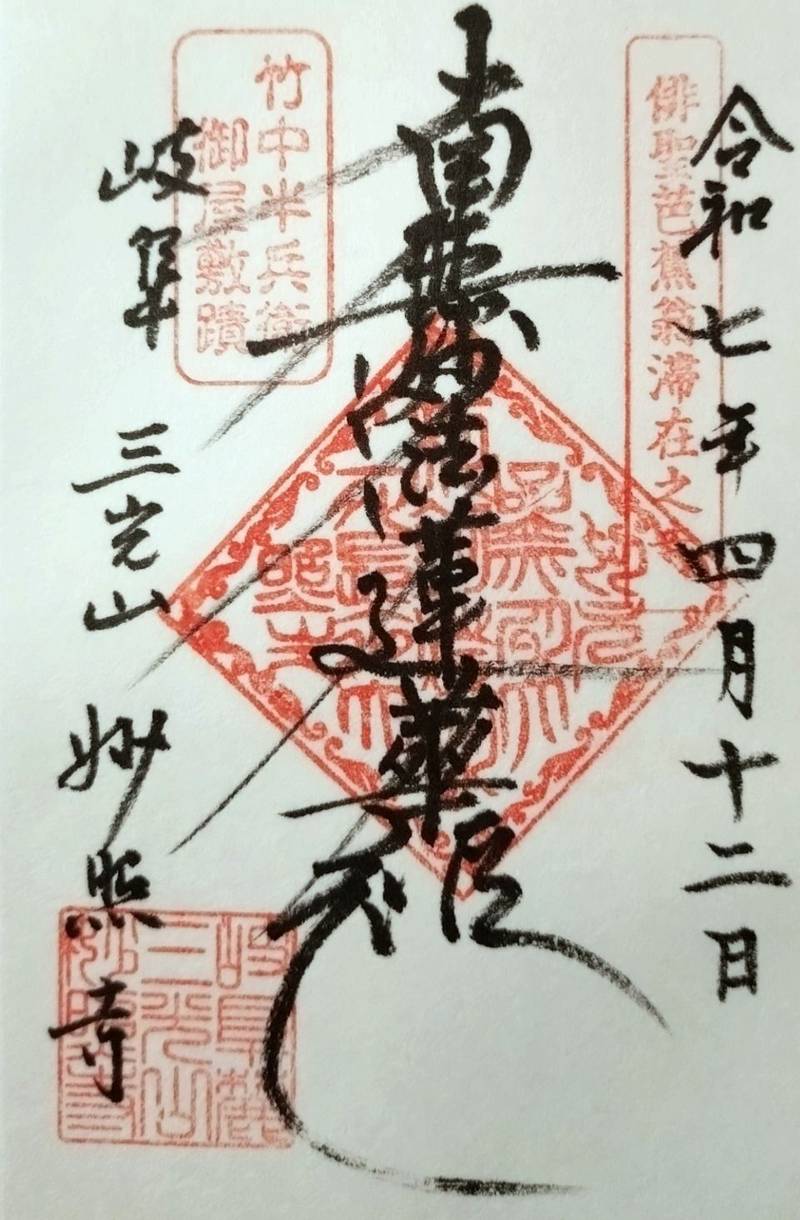 令和七年四月十二日
俳聖芭蕉翁滞在之
南無妙法蓮華経
竹中半兵衛
御屋敷蹟
岐阜 三光山 妙照寺